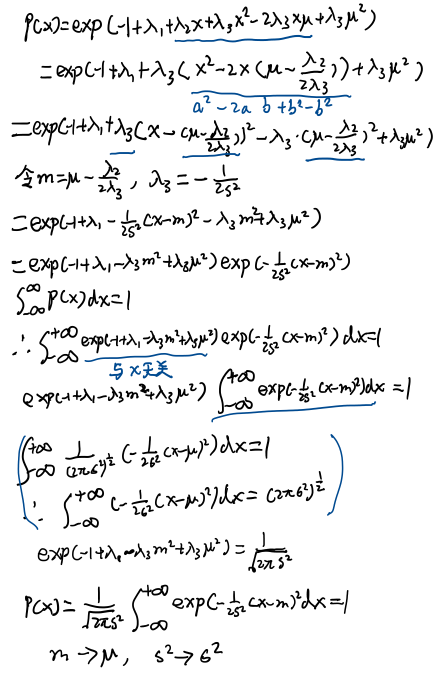 P(x)=exp(-1+λ₁+λ₂x+λ₃x²-2λ₃xμ+λ₃μ²)
=exp(-1+λ₁+λ₃(x²-2x(μ-λ₂/2λ₃))+λ₃μ²)
a²-2a b+b²-b²
=exp(-1+λ₁+λ₃(x-(μ-λ₂/2λ₃))²-λ₃·(μ-λ₂/2λ₃)²+λ₃μ²)
令m=μ-λ₂/2λ₃, λ₃=-1/2s²
=exp(-1+λ₁-1/2s²(x-m)²-λ₃m²+λ₃μ²)
=exp(-1+λ₁-λ₃m²+λ₃μ²)exp(-1/2s²(x-m)²)
∫_-∞^∞ P(x)dx=1
∴∫_-∞^+∞ exp(-1+λ₁-λ₃m²+λ₃μ²)exp(-1/2s²(x-m)²)dx=1
与x无关
exp(-1+λ₁-λ₃m²+λ₃μ²)∫_-∞^+∞ exp(-1/2s²(x-m)²)dx=1
(∫_-∞^+∞ 1/(2πσ²)^½ (-1/2σ²(x-μ)²)dx=1
∴∫_-∞^+∞ (-1/2σ²(x-μ)²)dx=(2πσ²)^½)
exp(-1+λ₁-λ₃m²+λ₃μ²)=1/√2πs²
P(x)=1/√2πs² ∫_-∞^+∞ exp(-1/2s²(x-m)²dx=1
m→μ, s²→σ²